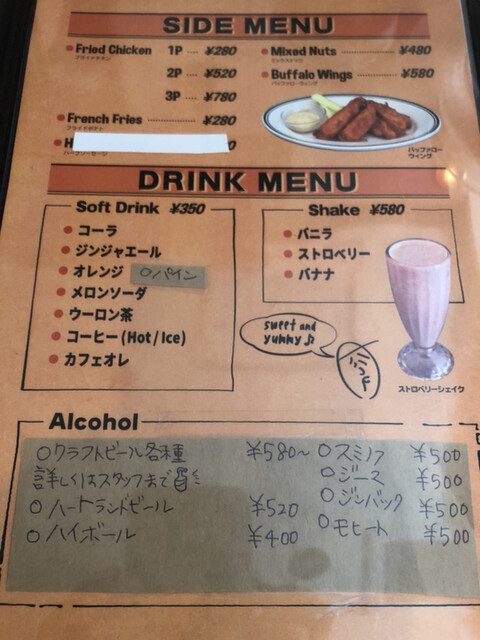 SIDE MENU
Fried Chicken 1P ¥280
フライドチキン
2P ¥520
3P ¥780
French Fries ¥280
フライドポテト
Mixed Nuts ¥480
ミックスナッツ
Buffalo Wings ¥580
バッファローウィング
バッファロー
ウィング
DRINK MENU
Soft Drink ¥350
コーラ
ジンジャエール
オレンジ ○パイン
メロンソーダ
ウーロン茶
コーヒー (Hot / Ice)
カフェオレ
Shake ¥580
バニラ
ストロベリー
バナナ
sweet and
yummy♪
ストロベリーシェイク
Alcohol
○クラフトビール各種 ¥580~
詳しくはスタッフまで
○ハートランドビール ¥520
○ハイボール ¥400
○スミノフ ¥500
○ジーマ ¥500
○ジンバック ¥500
○モヒート ¥500